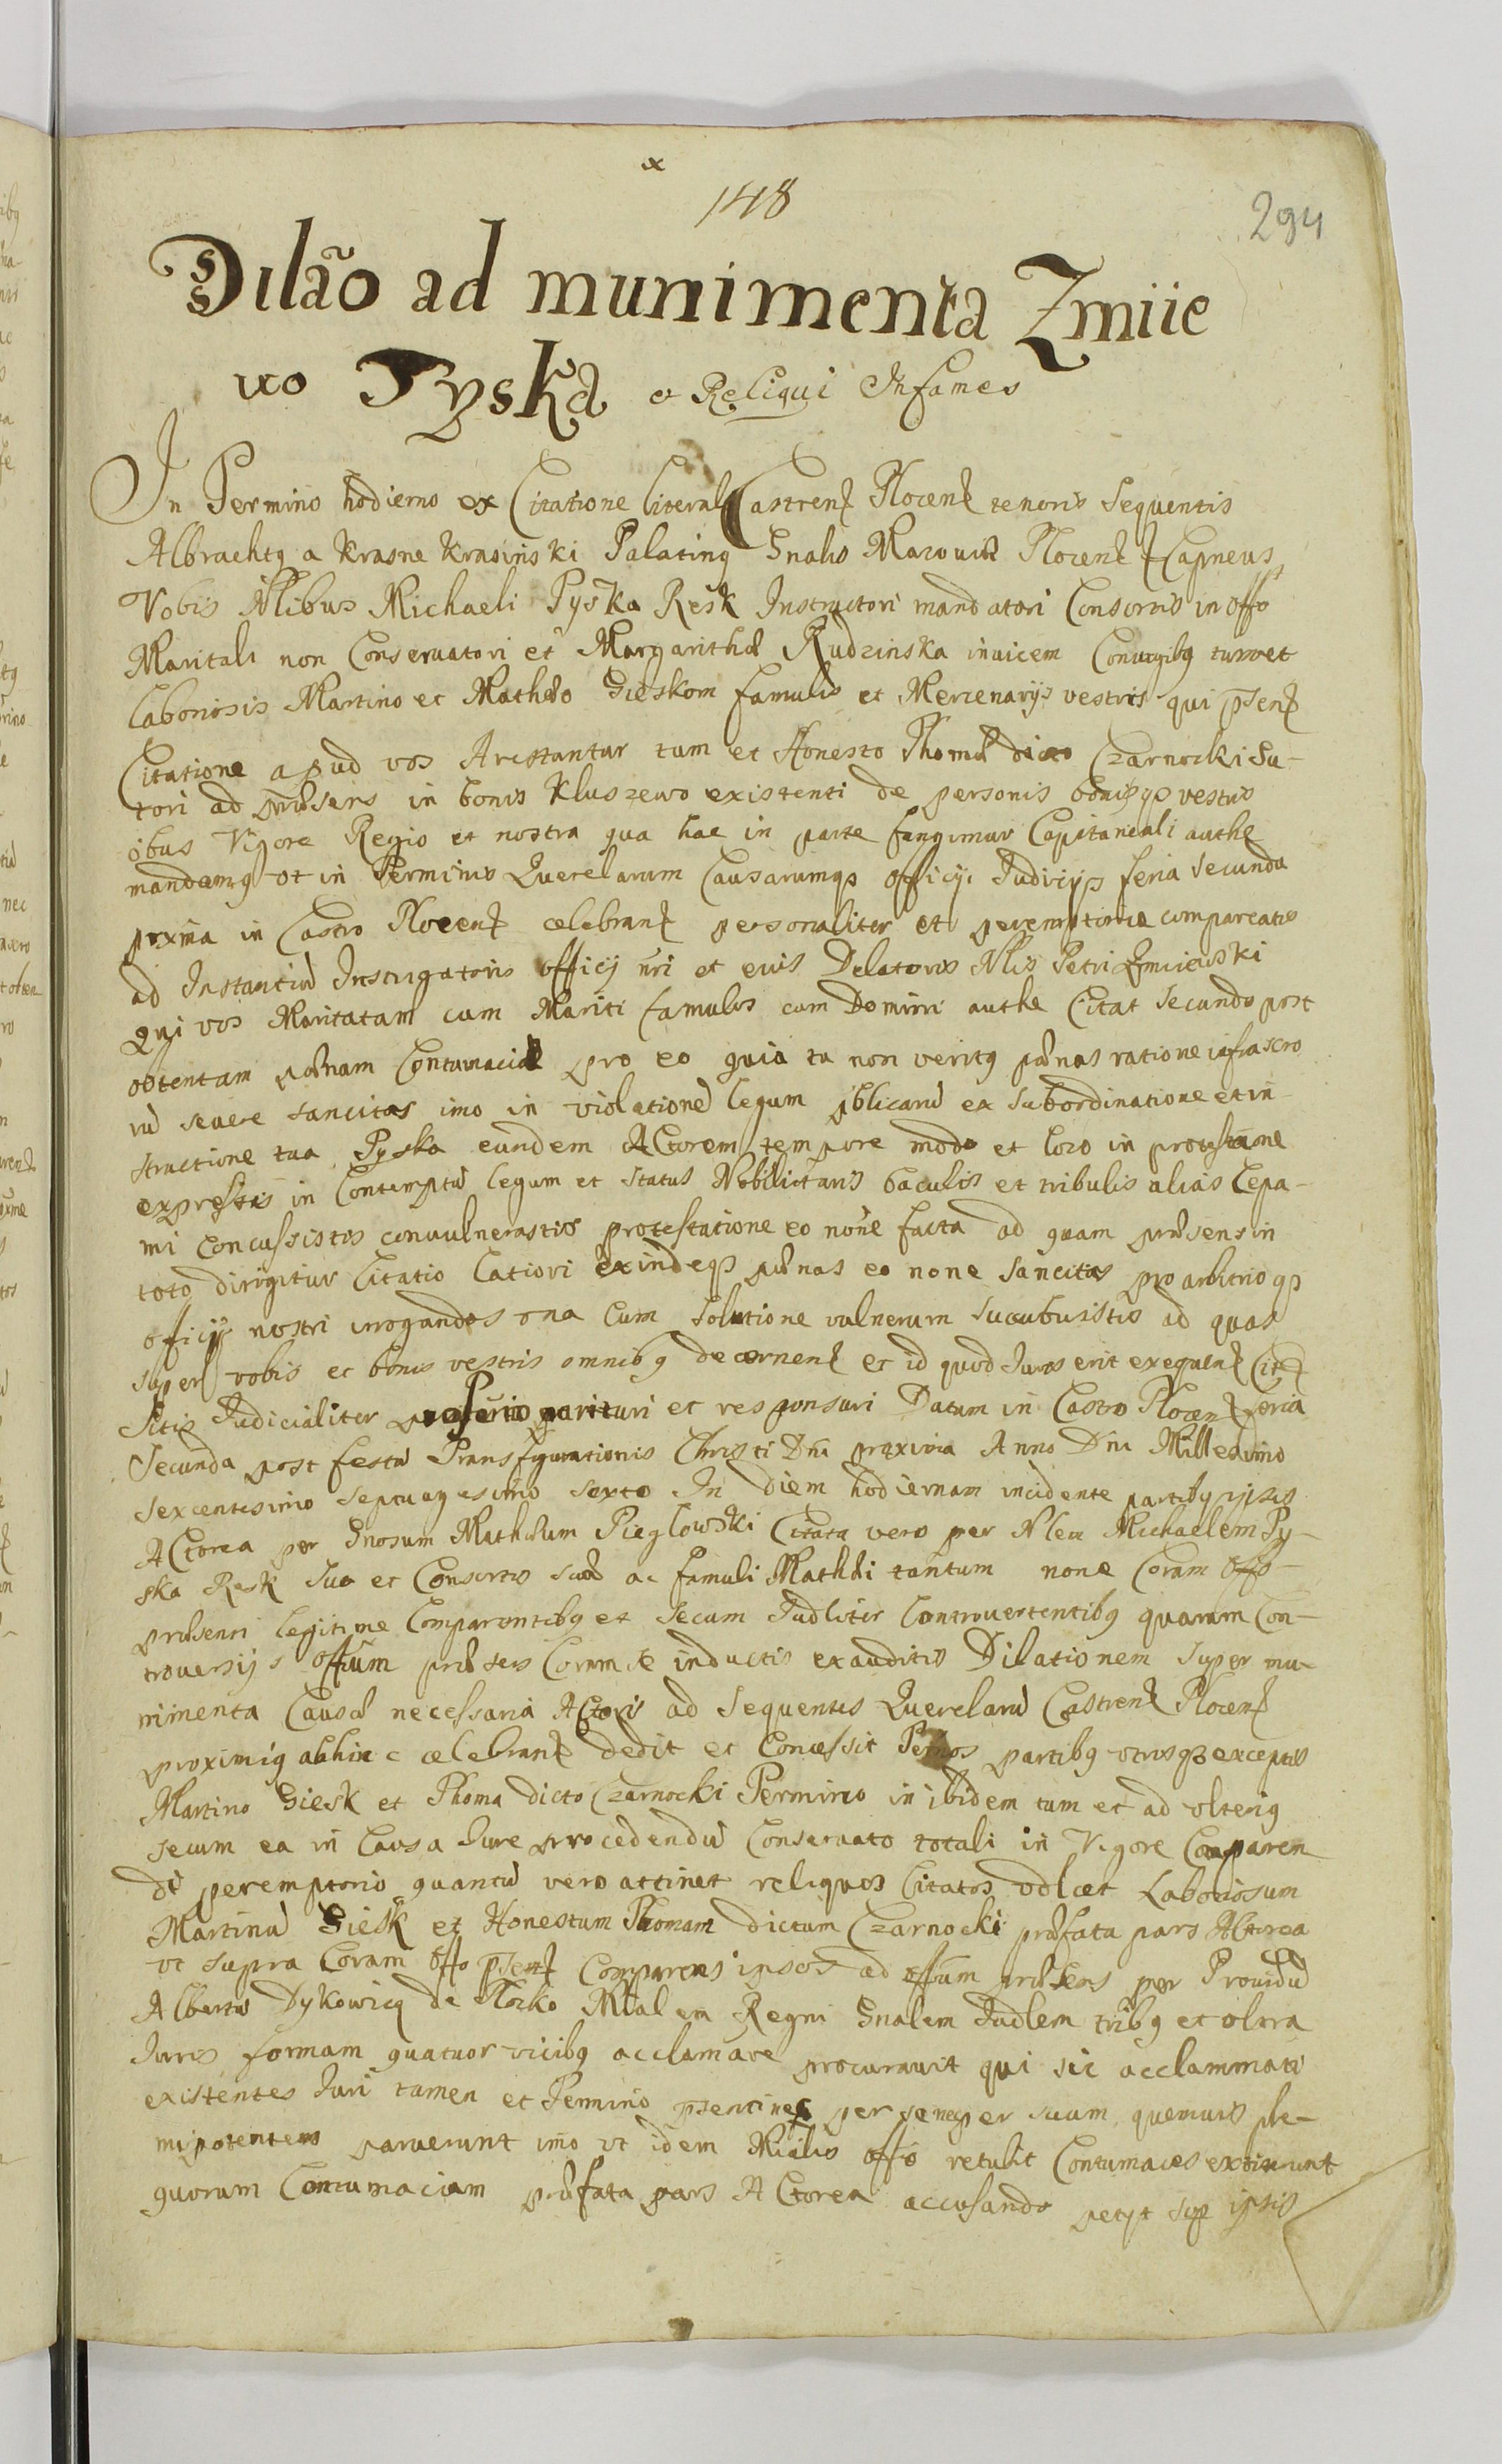 148
294
Dilão ad munimenta Zmiie
wo Pyska et Reliqui Infames
In Termino hodierno ex Citatione literali Castren Plocen tenoris sequentis
Albrachtq a Krasne Krasinski Palatinq Gnalis Mazouiæ Plocen Capneus
Vobis Nlibus Michaeli Pyska Resk Instructori mandatori Consortis in offo
Maritali non Conseruatori et Margarithæ Rudzinska inuicem Coniugibq tum et
laboriosis Martino et Mathæo Gieskom famulis et Mercenarijs vestris qui pñsen
Citatione apud vos Arestantur tum et Honesto Thomæ dicto Czarnocki su-
tori ad præsens in bonis Kluszewo existenti de personis bonisqz vestris
oibus Vigore Regio et nostra qua hac in parte fungimur Capitaneali authe
mandamq vt in Terminis Querelarum Causarumqz officij Judicijs feria secunda
proxima in Castro Plocen celebran personaliter et peremptorie compareatis
ad Instantiã Instigatoris officij nri et eius Delatoris Nlis Petri Zmiiewski
Qui vos Maritatam cum Mariti famulos cum Domini authe Citat secundo post
obtentam pænam Contumaciæ pro eo quia tu non veritq pænas ratione infrascro
rũ seuere sancitas imo in violationẽ legum pblicarũ ex subordinatione et in-
structione tua Pyska eundem Actorem tempore modo et loco in protestãne
expressis in Contemptũ legum et status Nobilitaris baculis et tribulis alias Cepa-
mi concussistis conuulnerastis protestatione eo noñe facta ad quam præsens in
toto dirigitur Citatio latiori exindeqz pænas eo noñe sancitas pro arbitrioqz
officij nostri irrogandas vna cum solutione vulnerum succubuistis ad quas
super vobis et bonis vestris omnibq decernen et id quod Juris erit exequen Cit
sitis Judicialiter parituri et responsuri Datum in Castro Plocen feria
Secunda post festũ Transfigurationis Christi Dñi proxima Anno Dñi Millesimo
sexcentesimo septuagesimo sexto In diem hodiernam incidente partibq ipsis
Actorea per Gnosum Mathæum Pieglowski Citata vero per Nlem Michaelem Py-
ska Resk suo et Consortis suæ ac famuli Mathæi tantum noñe Coram offo
præsenti legitime Comparentibq et secum Judliter Controuertentibq quarum Con-
trouersijs offium præsens Coram se inductis exauditis Dilationem super mu-
nimenta Causæ necessaria Actoris ad sequentes Querelarũ Castren Plocen
proximiq abhinc celebran dedit et Concessit Ternos partibq vtrisqz exceptis
Martino Giesk et Thoma dicto Czarnocki Termino in ibidem tum et ad vlteriq
secum ea in Causa Jure procedendũ Conseruato totali in Vigore Comparen
di peremptorio quantũ vero attinet reliquos Citatos vdlcet Laboriosum
Martinũ Giesk et Honestum Thomam dictum Czarnocki præfata pars Actorea
vt supra Coram offo pñsen Comparens ipsos ad offium præsens per Prouidũ
Albertũ Dykowicz de Plocko Mlalem Regni Gnalem Judlem tribq et vltra
Juris formam quatuor vicibq acclamare procurauit qui sic acclammati
existentes Juri tamen et Termino per se neqz per suum quemuis ple-
nipotentem paruerunt imo vt idem Mlalis offo retulit Contumaces extiterunt
quorum Contumaciam præfata pars Actorea accusando petijt sup ipsis